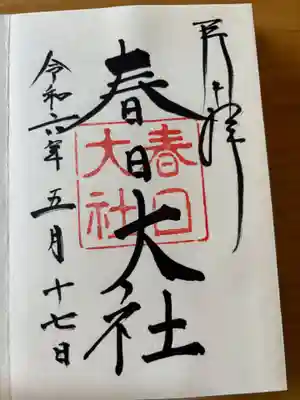 奉拝
春日大社
春日大社
令和六年五月十七日